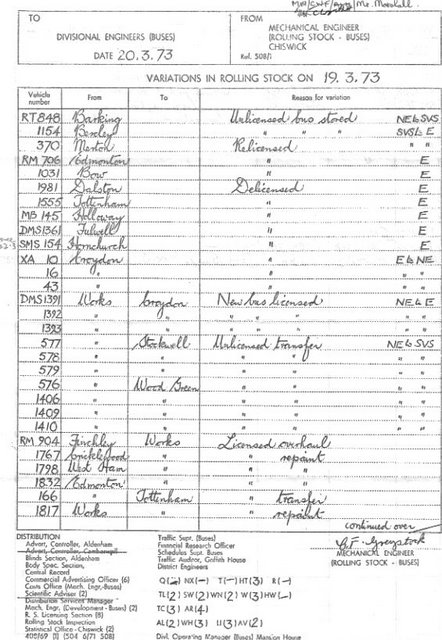 Mr. Marshall
TO
FROM
DIVISIONAL ENGINEERS (BUSES)
MECHANICAL ENGINEER
(ROLLING STOCK - BUSES)
CHISWICK
DATE 20.3.73
Ref. 508/1
VARIATIONS IN ROLLING STOCK ON 19.3.73
Vehicle number From To Reason for variation
RT 848 Barking Unlicensed bus stored NE to SVS
1154 Bexley " " " SVS to E
370 Merton Relicensed " "
RM 706 Edmonton " E
1031 Bow " E
1981 Dalston Delicensed E
1555 Tottenham " E
MB 145 Holloway " E
DMS 1361 Fulwell " E
SMS 154 Hornchurch " E
XA 10 Croydon " E to NE
16 " " " "
43 " " " "
DMS 1391 Works Croydon New bus licensed NE to E
1392 " " " " " " "
1393 " " " " " " "
577 " Stockwell Unlicensed transfer NE to SVS
578 " " " " " "
579 " " " " " "
576 " Wood Green " " " "
1406 " " " " " "
1409 " " " " " "
1410 " " " " " "
RM 904 Finchley Works Licensed overhaul
1767 Cricklewood " " repaint
1798 West Ham " " "
1832 Edmonton " " "
166 " Tottenham " transfer
1817 Works " " repaint
continued over
MECHANICAL ENGINEER
(ROLLING STOCK - BUSES)
DISTRIBUTION
Advert. Controller, Aldenham
Advert. Controller, Camberwell
Blinds Section, Aldenham
Body Spec. Section,
Central Record
Commercial Advertising Officer (6)
Costs Office (Mech. Engr.-Buses)
Scientific Adviser (2)
Distribution Services Manager
Mech. Engr, (Development - Buses) (2)
R. S. Licensing Section (8)
Rolling Stock Inspection
Statistical Office - Chiswick (2)
Traffic Supt. (Buses)
Financial Research Officer
Schedules Supt. Buses
Traffic Auditor, Griffith House
District Engineers
Q(-) NX(-) T(-) HT(3) R(-)
TL(2) SW(2) WN(2) W(3) HW(-)
TC(3) AR(4)
AL(2) WH(3) U(3) AV(2)
Divl. Operating Manager (Buses) Mansion House